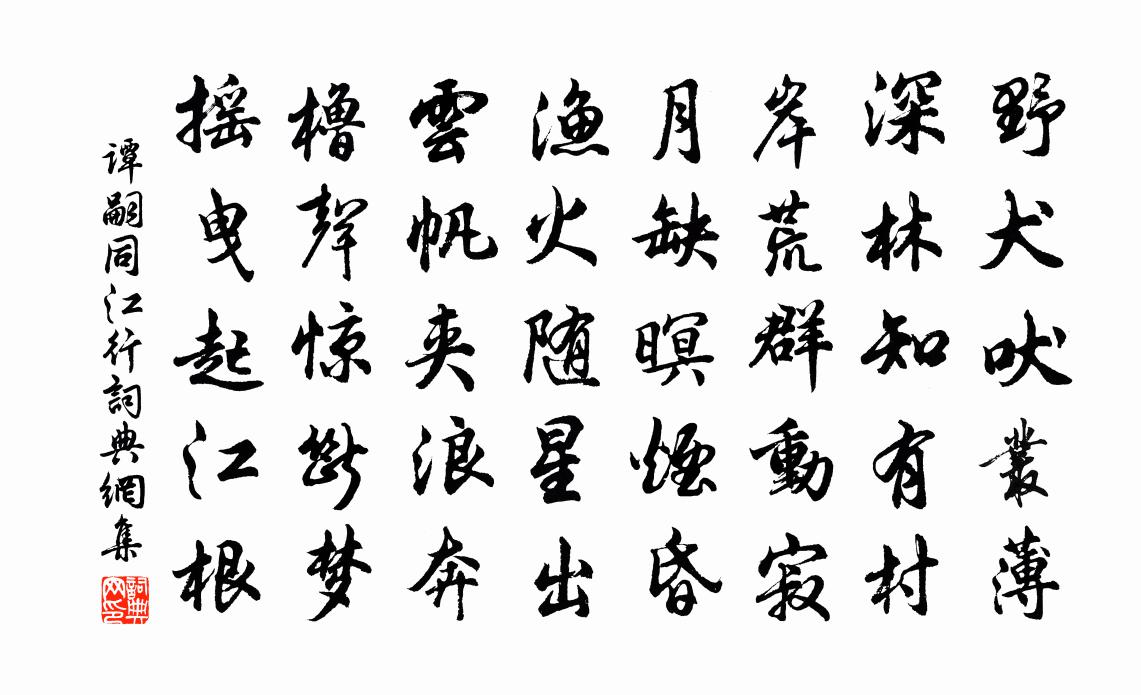 野犬吠叢薄
深林知有村
岸荒群動寂
月缺暝煙昏
漁火随星出
雲帆夹浪奔
櫓聲惊斷梦
摇曳起江根
谭嗣同江行詞典網集
詞典网印